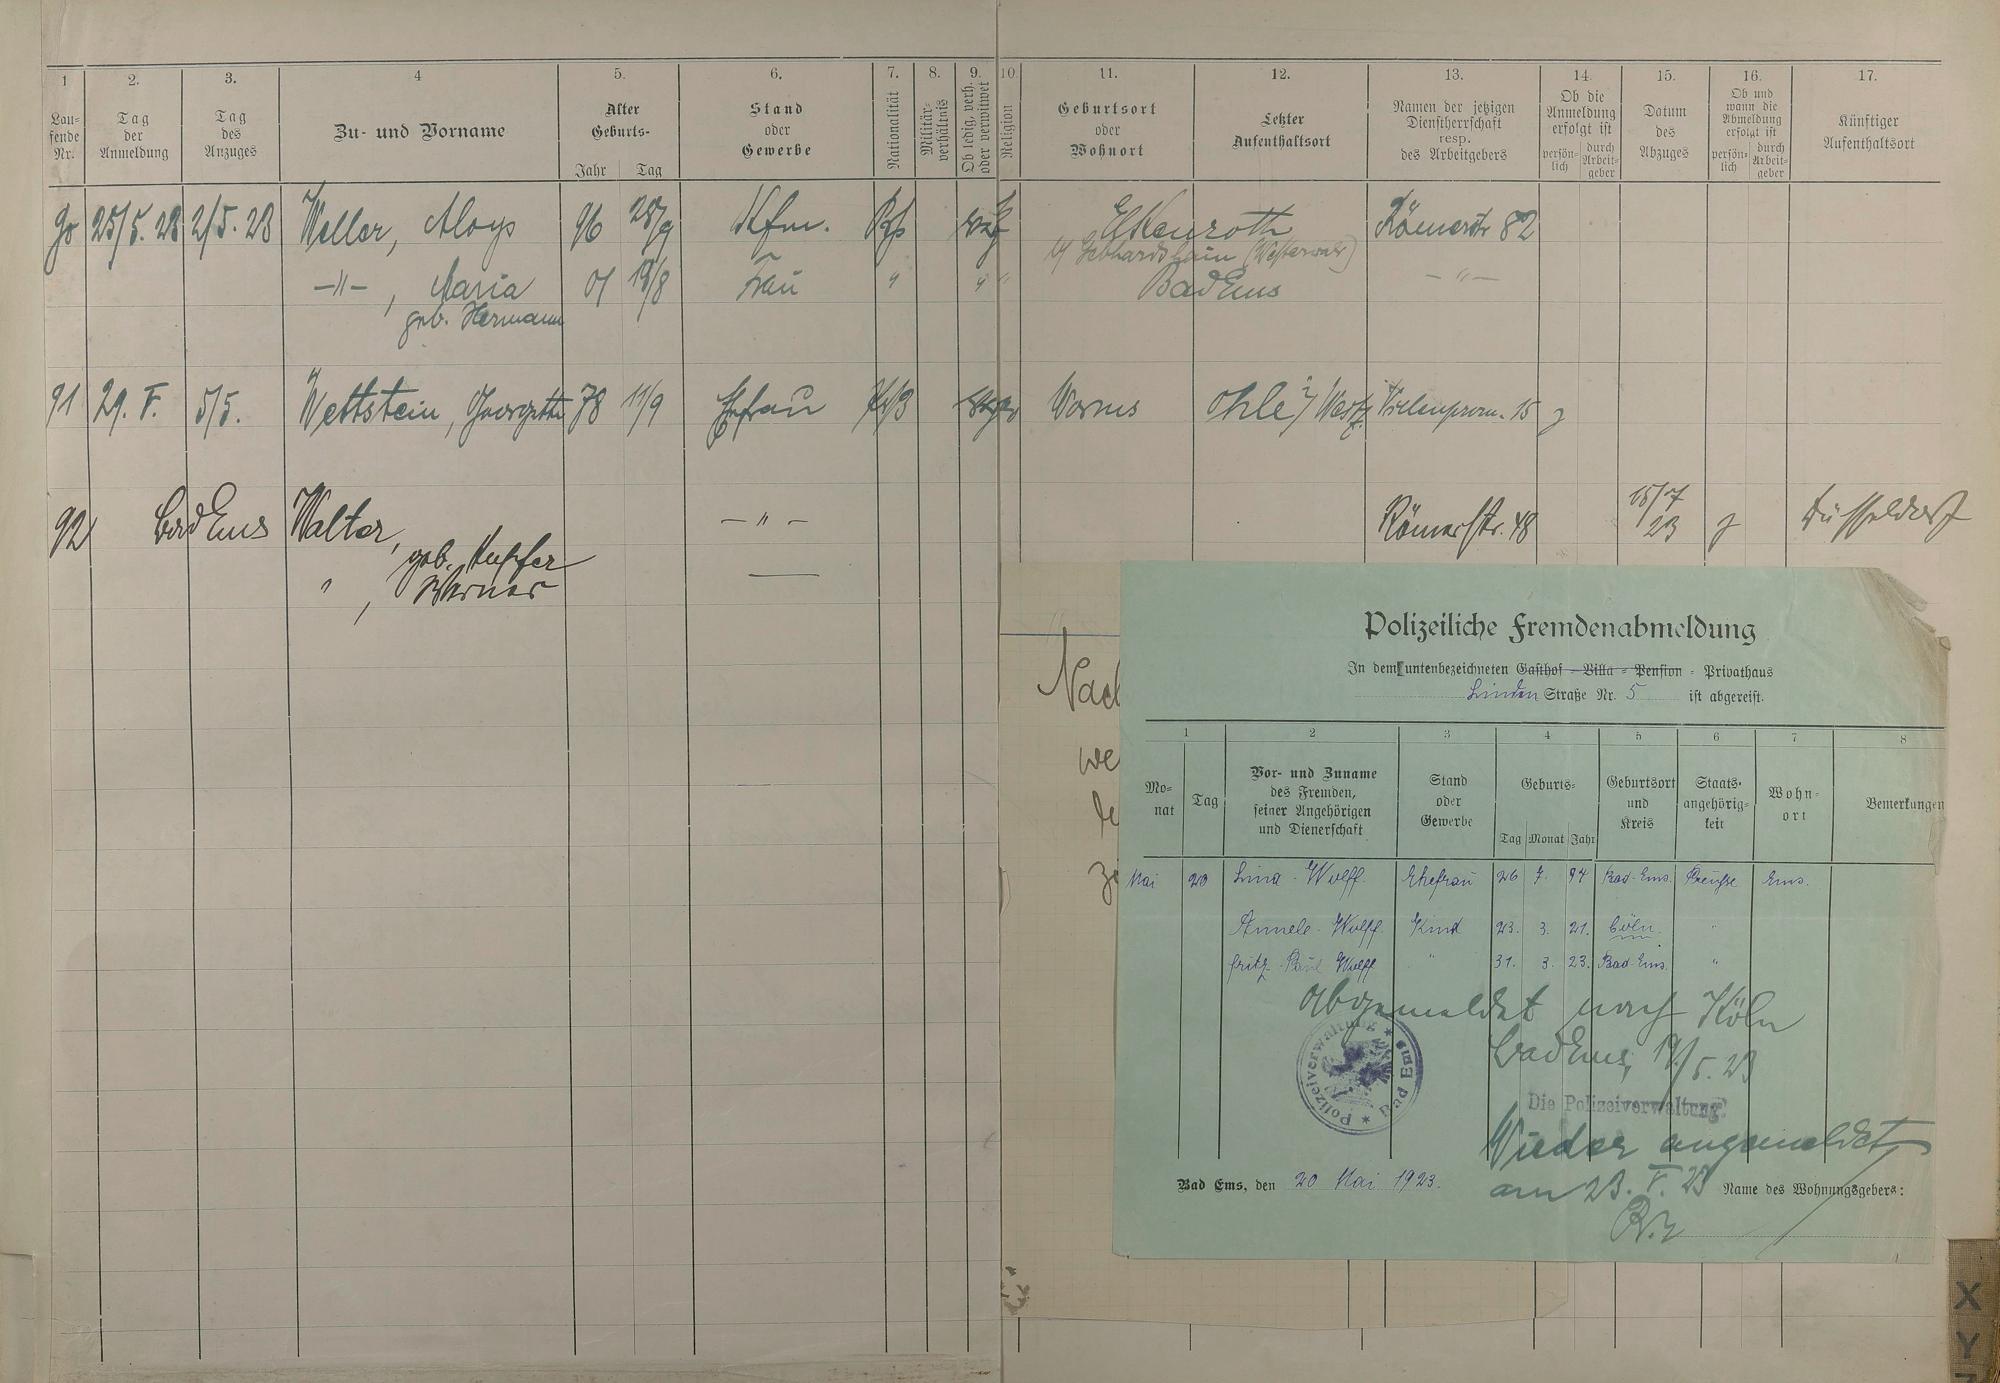 1 2. 3. 4 5. 6. 7. 8. 9. 10 11. 12. 13. 14. 15. 16. 17.
Lau-
fende
Nr.
Tag
der
Anmeldung
Tag
des
Anzuges
Zu- und Vorname
Alter
Geburts-
Jahr Tag
Stand
oder
Gewerbe
Nationalität
Militär-
verhältnis
Ob ledig, verh.
oder verwitwet
Religion
Geburtsort
oder
Wohnort
Letzter
Aufenthaltsort
Namen der jetzigen
Dienstherrschaft
resp.
des Arbeitgebers
Ob die
Anmeldung
erfolgt ist
persön-
lich
durch
Arbeit-
geber
Datum
des
Abzuges
Ob und
wann die
Abmeldung
erfolgt ist
persön-
lich
durch
Arbeit-
geber
Künftiger
Aufenthaltsort
90 25/5. 23 2/5. 23 Weller, Aloys 96 28/9 Kfm. Elkenroth Römerstr 82
Gebhardshain (Westerwald)
—"— , Maria 01 19/8 Frau " " " Bad Ems — " —
geb. Hermann
91 29. V. 5/5. Wettstein, Georgette 78 11/9 Ehefrau Worms Ohle i/ Westf. Viktoriaprom. 15
92 Bad Ems Walter, — " — Römerstr. 48 15/7 23 Düsseldorf
geb. Kupfer
" , Werner —
Nach
we
Polizeiliche Fremdenabmeldung
In dem untenbezeichneten Gasthof - Villa - Pension - Privathaus
Linden Straße Nr. 5 ist abgereist.
1 2 3 4 5 6 7 8
Mo-
nat
Tag
Vor- und Zuname
des Fremden,
seiner Angehörigen
und Dienerschaft
Stand
oder
Gewerbe
Geburts-
Tag Monat Jahr
Geburtsort
und
Kreis
Staats-
angehörig-
keit
Wohn-
ort
Bemerkungen
Mai 20 Lina Wolff. Ehefrau 26 7. 94 Bad-Ems. Preuße Ems.
Annele Wolff. Kind 23. 3. 21. Cöln. "
Fritz Paul Wolff " 31. 3. 23. Bad-Ems. "
abgemeldet nach Köln
Bad Ems, 19/5. 23
Polizeiverwaltung ★ Bad Ems ★
Die Polizeiverwaltung.
Wieder angemeldet
am 23. V. 23
Bad Ems, den 20 Mai 1923. Name des Wohnungsgebers:
X
Y
Z